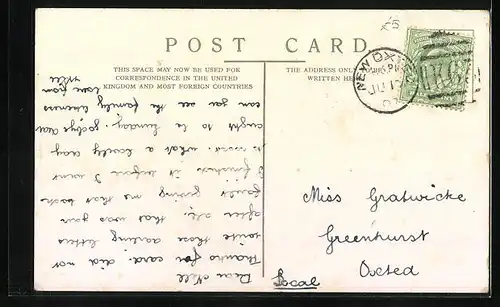 £5
POST CARD
THIS SPACE MAY NOW BE USED FOR
CORRESPONDENCE IN THE UNITED
KINGDOM AND MOST FOREIGN COUNTRIES
THE ADDRESS ONLY
WRITTEN HE
NEW OX
JU 17
07
Dear Nell
Thanks for card. did not
write those darling letters
after all, that was your
fault giving me that book
I finished it before I went
to what a lovely day
ought to be Sunday. goodbye dear
can you see the family likeness
love from
Will
Miss Gratwicke
Greenhurst
Oxted
Local